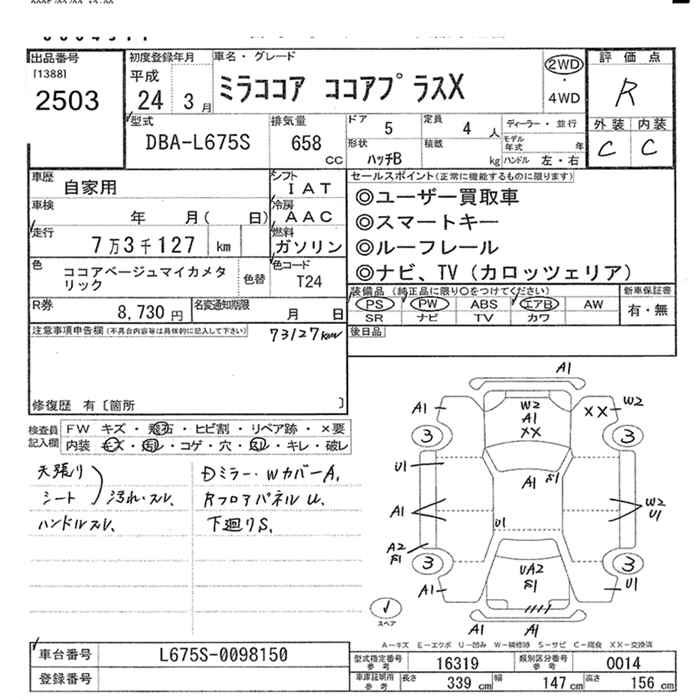 出品番号
[1388]
2503
初度登録年月
平成
24 3 月
車名・グレード
ミラココア ココアプラスX
2WD
・
4WD
評価点
R
外装 内装
C C
型式
DBA-L675S
排気量
658
CC
ドア
5
定員
4 人
ディーラー・並行
形状
ハッチB
積載
kg
モデル年式 年
ハンドル 左・右
車歴
自家用
シフト
IAT
車検
年 月( 日)
冷房
AAC
走行
7万3千127 km
燃料
ガソリン
色
ココアベージュマイカメタリック
色替
色コード
T24
R券
8,730 円
名変通知期限
月 日
セールスポイント(正常に機能するものに限ります)
◎ユーザー買取車
◎スマートキー
◎ルーフレール
◎ナビ、TV(カロッツェリア)
装備品(純正品に限り○をつけてください)
新車保証書
PS PW ABS エアB AW
SR ナビ TV カワ
有・無
注意事項申告欄(不具合内容等は具体的に記入して下さい)
73127km
後日品
修復歴 有[箇所 ]
検査員記入欄
FW キズ・飛石・ヒビ割・リペア跡・×要
内装 キズ・汚れ・コゲ・穴・スレ・キレ・破レ
天張り
シート
汚れ・スレ
ハンドルスレ、
Dミラー・WカバーA、
RフロアパネルU、
下廻りS、
A1
A1
W2
A1
XX
XX
W2
3
3
U1
A1
A1
U1
W2
U1
A2
3
3
A1
UA2
U1
A1
A1
スペア
A-キズ E-エクボ U-凹み W-補修跡 S-サビ C-腐食 XX-交換済
車台番号
L675S-0098150
登録番号
型式指定番号
参考
16319
類別区分番号
参考
0014
車庫証明用
参考
長さ
339 cm
幅
147 cm
高さ
156 cm